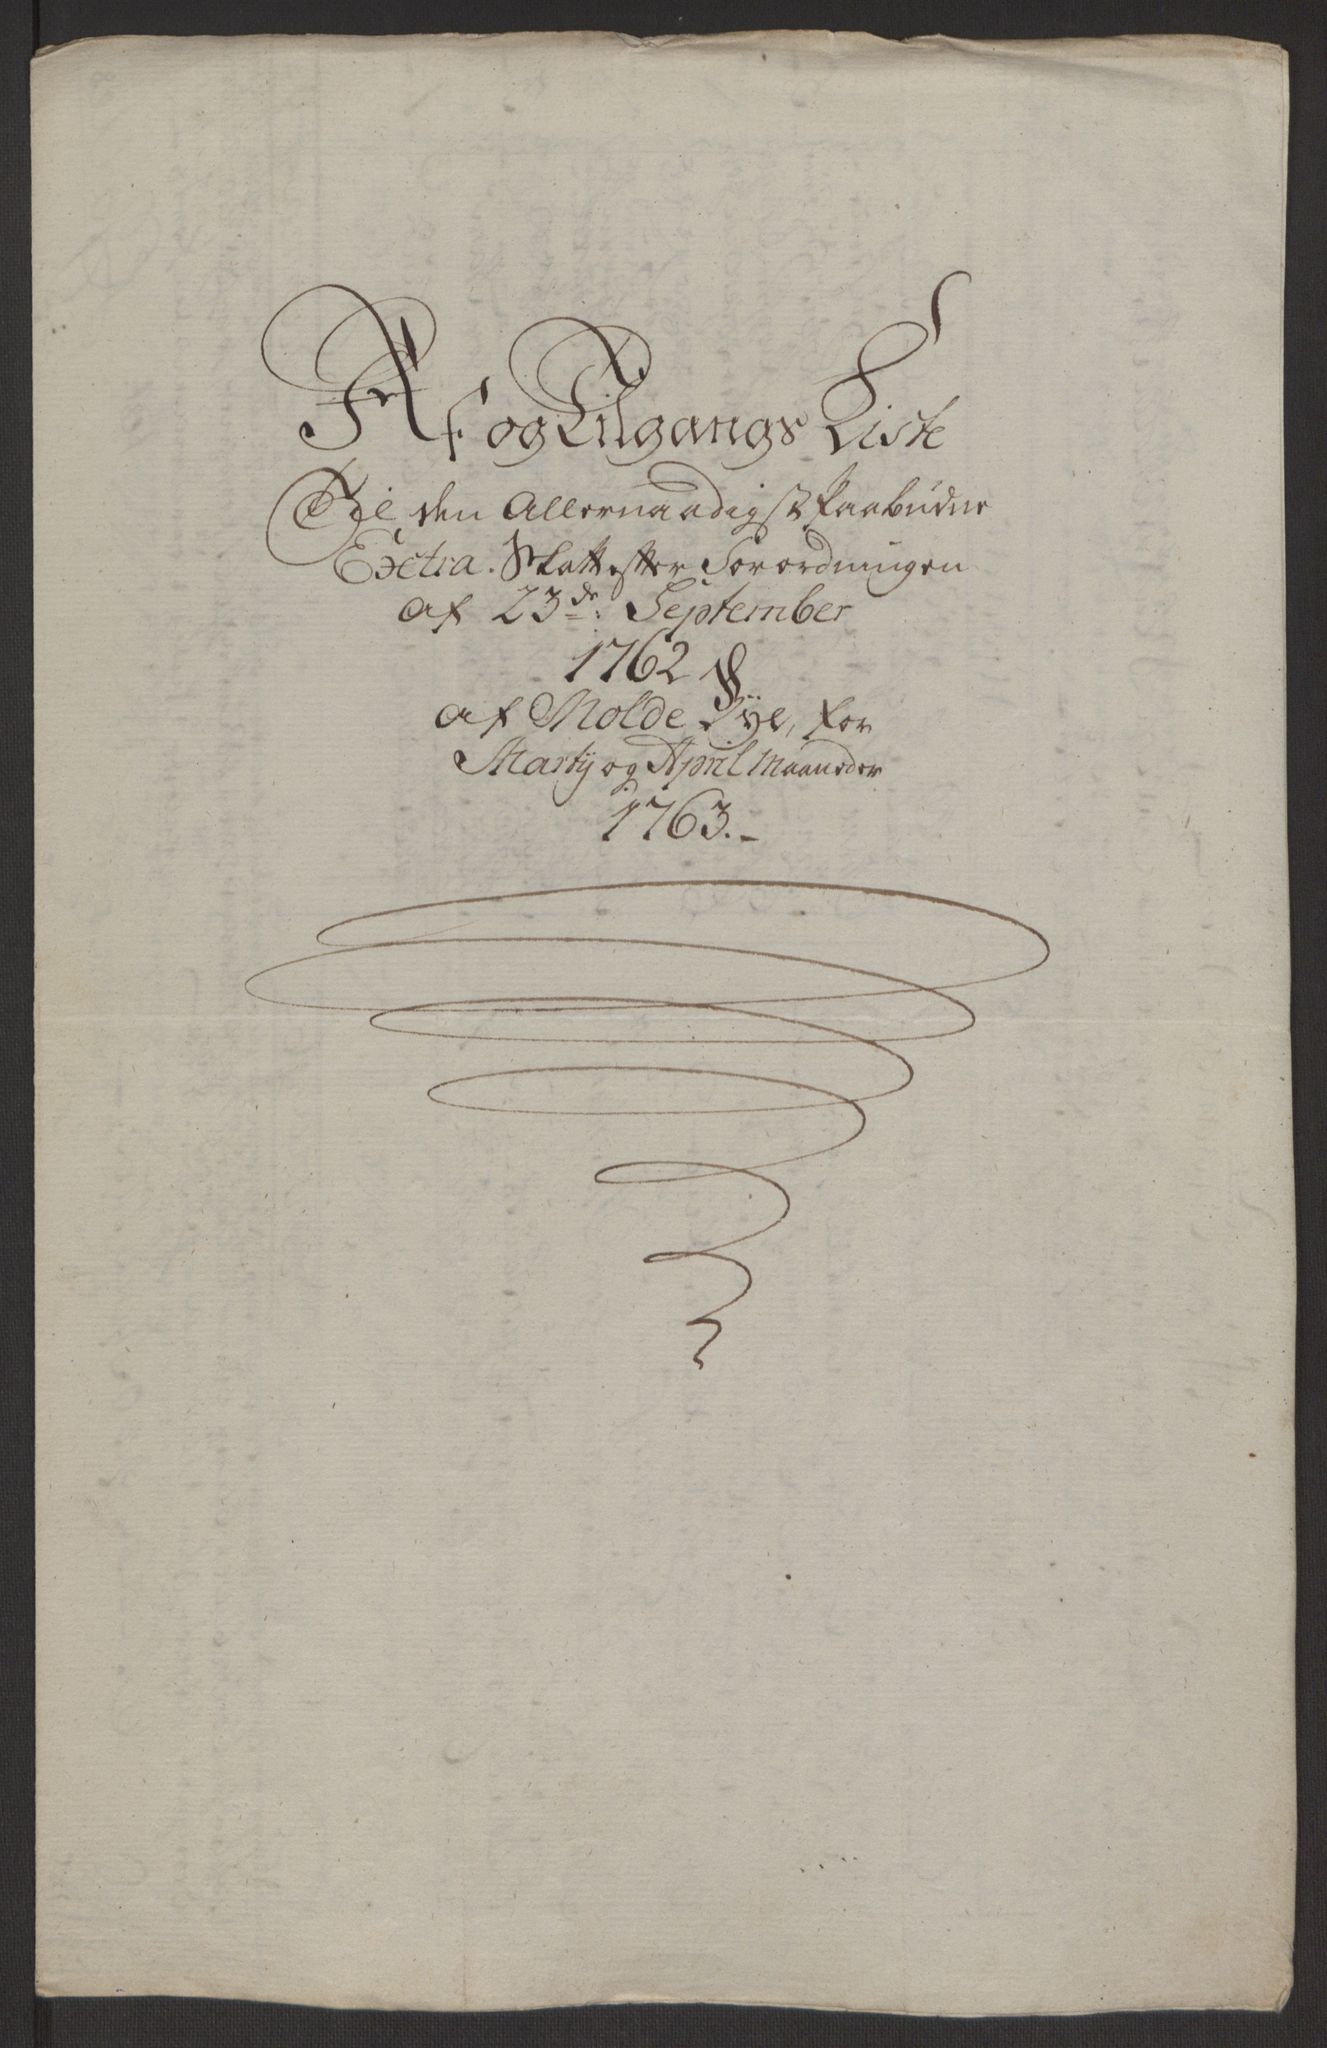 Af og Tilgangs Liste
Til den Allernaadigst Paabudne
Extra. Skatt efter Forordningen
af 23de: September
1762
af Molde Bye, for
Marty og April Maaneder
1763.-